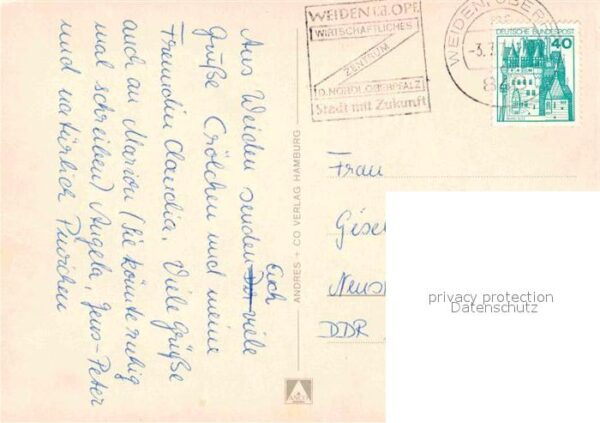 Aus Weiden senden Euch viele
Grüße Crölchen und meine
Freundin Claudia. Viele Grüße
auch an Marion (sie könnte ruhig
mal schreiben) Angela, Jens-Peter
und natürlich
ANDRES + CO VERLAG HAMBURG
WEIDEN I.D.OPF.
WIRTSCHAFTLICHES
ZENTRUM
D. NÖRDL. OBERPFALZ
Stadt mit Zukunft
WEIDEN, OBERPF
-3.
8
DEUTSCHE BUNDESPOST
40
Frau
Gisel
Neus
DDR
privacy protection
Datenschutz